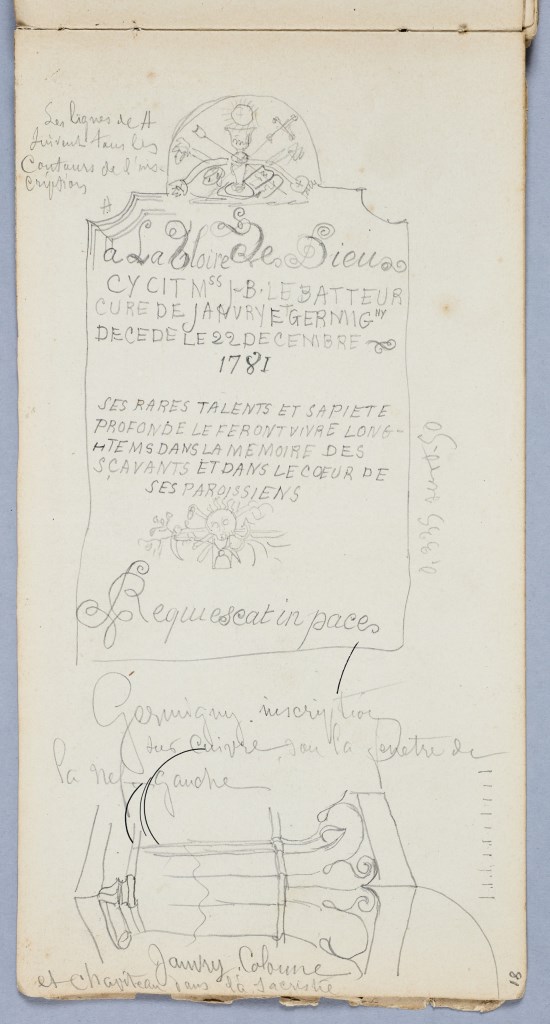 Les lignes de A
suivent tous les
Contours de l'ins-
cription
A
a La Gloire De Dieu
CY CIT Mss J-B. LE BATTEUR
CURE DE JANVRY ET GERMIGNY
DECEDE LE 22 DECEMBRE
1781
SES RARES TALENTS ET SA PIETE
PROFONDE LE FERONT VIVRE LONG-
HTEMS DANS LA MEMOIRE DES
SÇAVANTS ET DANS LE CŒUR DE
SES PAROISSIENS
Requiescat in pace
Germigny. inscription
sur cuivre, sou la fenetre de
la nef gauche
Janvry. Colonne
et chapiteau dans la sacristie
18